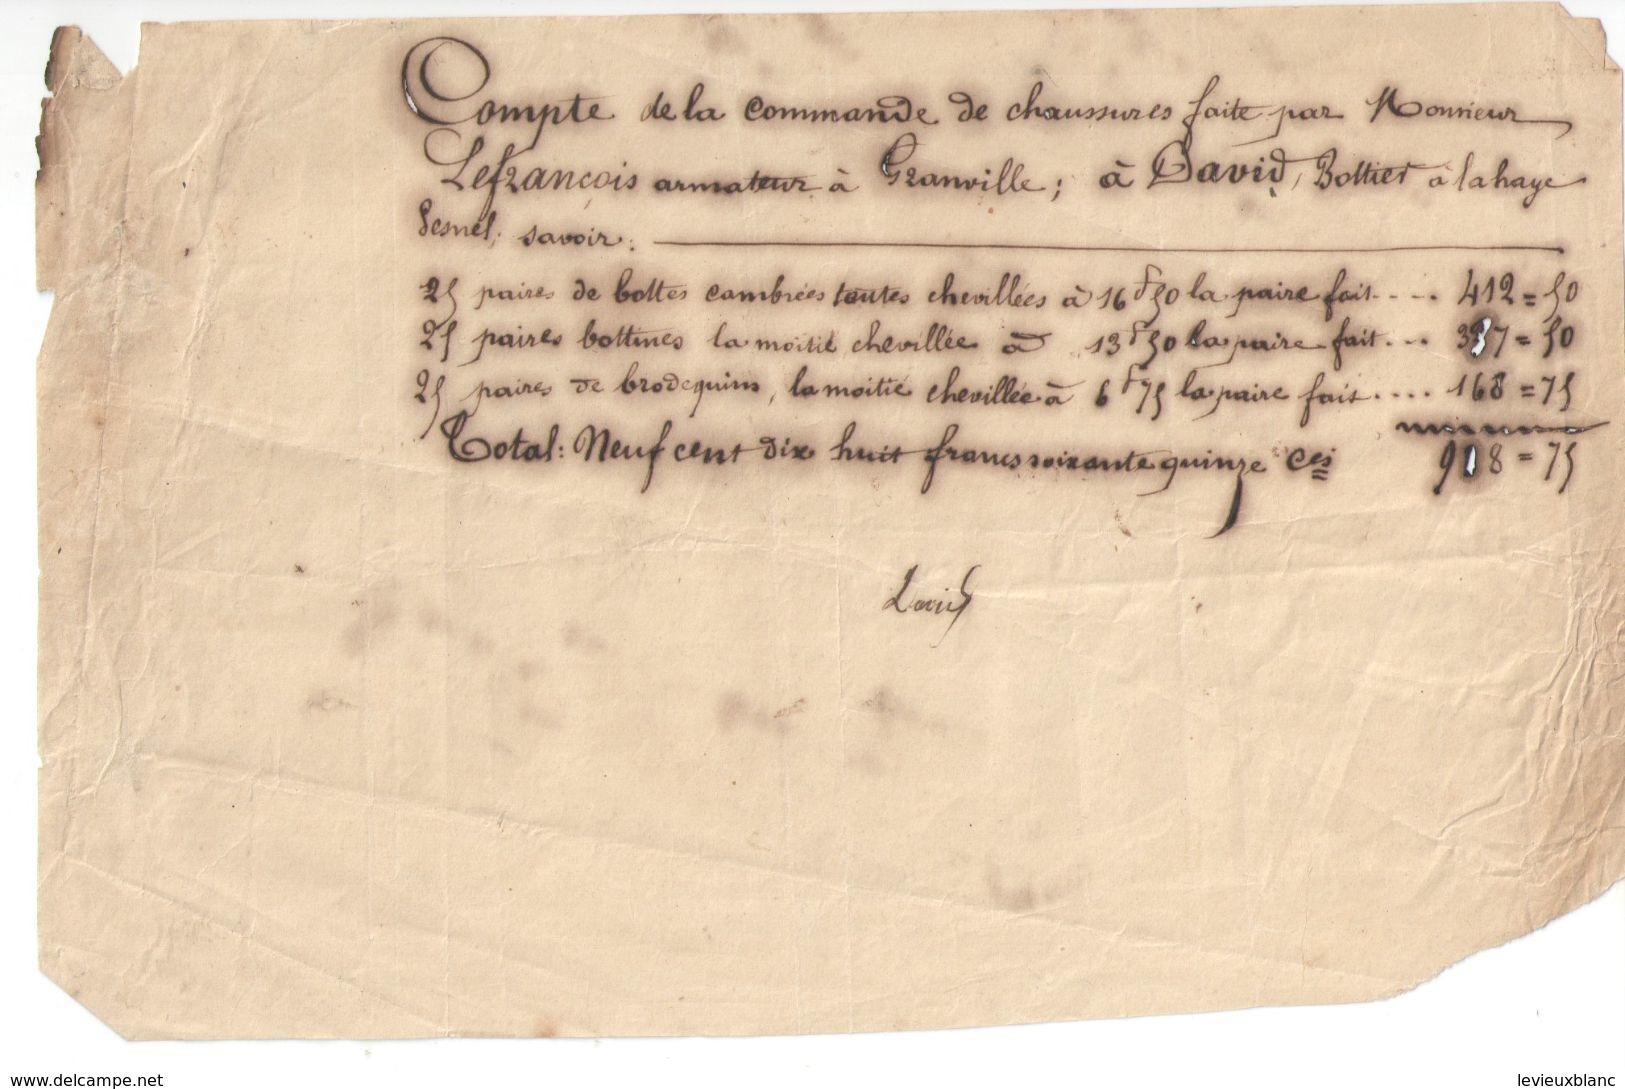 Compte de la commande de chaussures faite par Monsieur
Lefrançois armateur à Granville; à David, Bottier à la haye
Pesnel. savoir:
25 paires de bottes cambrées toutes chevillées à 16f50 la paire fait.... 412=50
25 paires bottines la moitié chevillée à 13f50 la paire fait... 337=50
25 paires de brodequins, la moitié chevillée à 6f75 la paire fait.... 168=75
Total: Neuf cent dix huit francs soixante quinze ces 918=75
David
www.delcampe.net
levieuxblanc